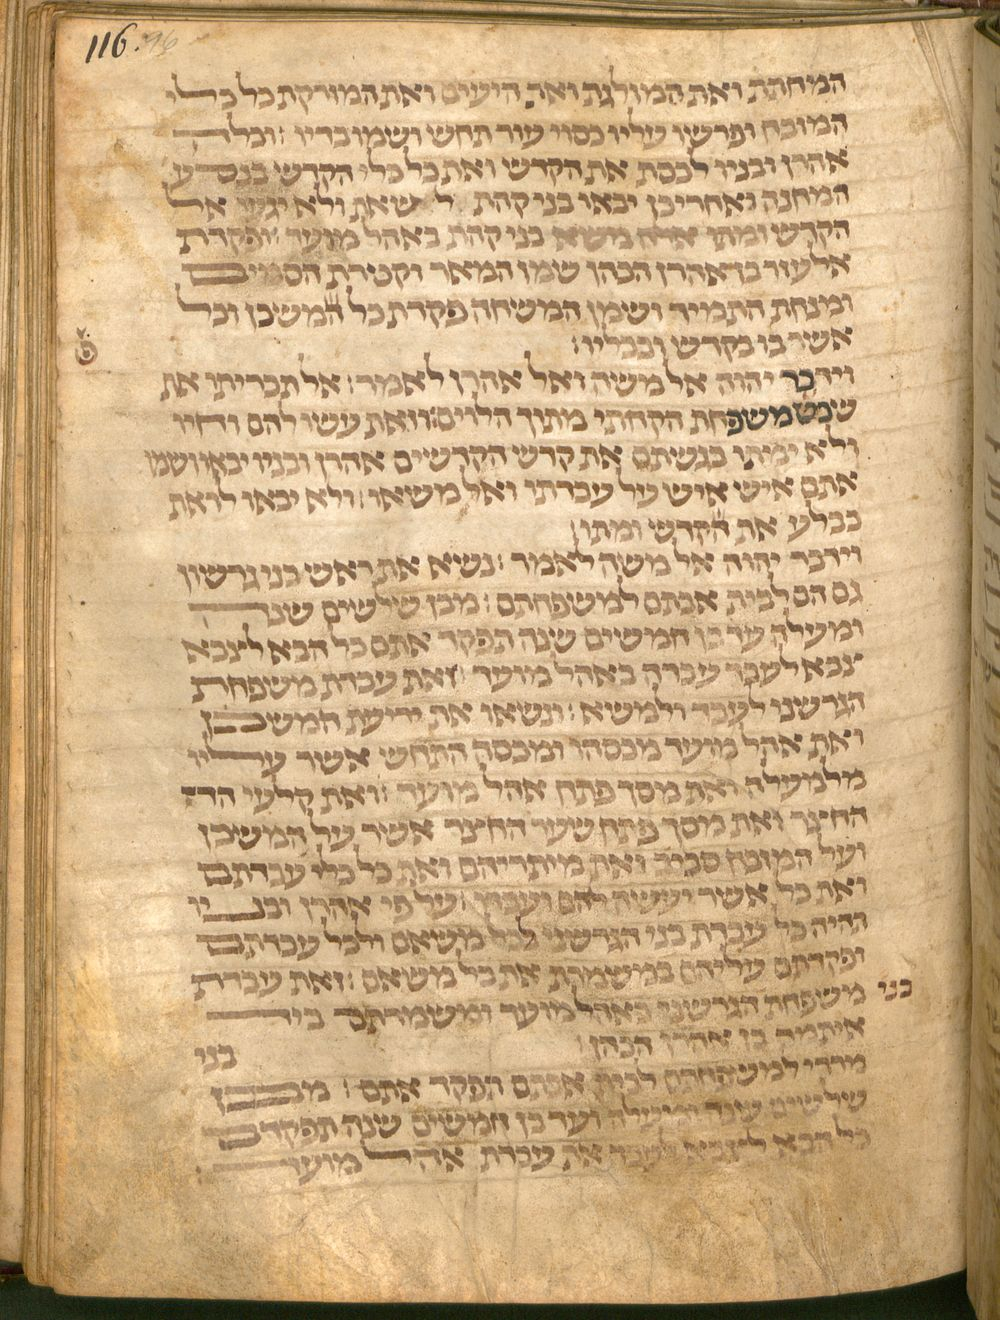 116. 96
המחתת ואת המזלגת ואת היעים ואת המזרקת כל כלי
המזבח ופרשו עליו כסוי עור תחש ושמו בדיו : וכלה
אהרן ובניו לכסת את הקדש ואת כל כלי הקדש בנסע
המחנה ואחרי כן יבאו בני קהת לשאת ולא יגעו אל
הקדש ומתו אלה משא בני קהת באהל מועד : ופקדת
אלעזר בן אהרן הכהן שמן המאר וקטרת הסמים
ומנחת התמיד ושמן המשחה פקדת כל המשכן וכל
אשר בו בקדש ובכליו :
וידבר יהוה אל משה ואל אהרן לאמר : אל תכריתו את
שבט משפחת הקהתי מתוך הלוים : וזאת עשו להם וחיו
ולא ימתו בגשתם את קדש הקדשים אהרן ובניו יבאו ושמו
אתם איש איש על עבדתו ואל משאו : ולא יבאו לראת
כבלע את הקדש ומתו :
וידבר יהוה אל משה לאמר : נשיא את ראש בני גרשון
גם הם לבית אבתם למשפחתם : מבן שלשים שנה
ומעלה עד בן חמשים שנה תפקד אתם כל הבא לצבא
צבא לעבד עבדה באהל מועד : זאת עבדת משפחת
הגרשני לעבד ולמשא : ונשאו את יריעת המשכן
ואת אהל מועד מכסהו ומכסה התחש אשר עליו
מלמעלה ואת מסך פתח אהל מועד : ואת קלעי הח
החצר ואת מסך פתח שער החצר אשר על המשכן
ועל המזבח סביב ואת מיתריהם ואת כל כלי עבדתם
ואת כל אשר יעשה להם ועבדו : על פי אהרן ובניו
תהיה כל עבדת בני הגרשני לכל משאם ולכל עבדתם
ופקדתם עליהם במשמרת את כל משאם : זאת עבדת
בני
משפחת הגרשני באהל מועד ומשמרתם ביד
איתמר בן אהרן הכהן : בני
מררי למשפחתם לבית אבתם תפקד אתם : מבן
שלשים שנה ומעלה ועד בן חמשים שנה תפקדם
כל הבא לצבא לעבד את עבדת אהל מועד :